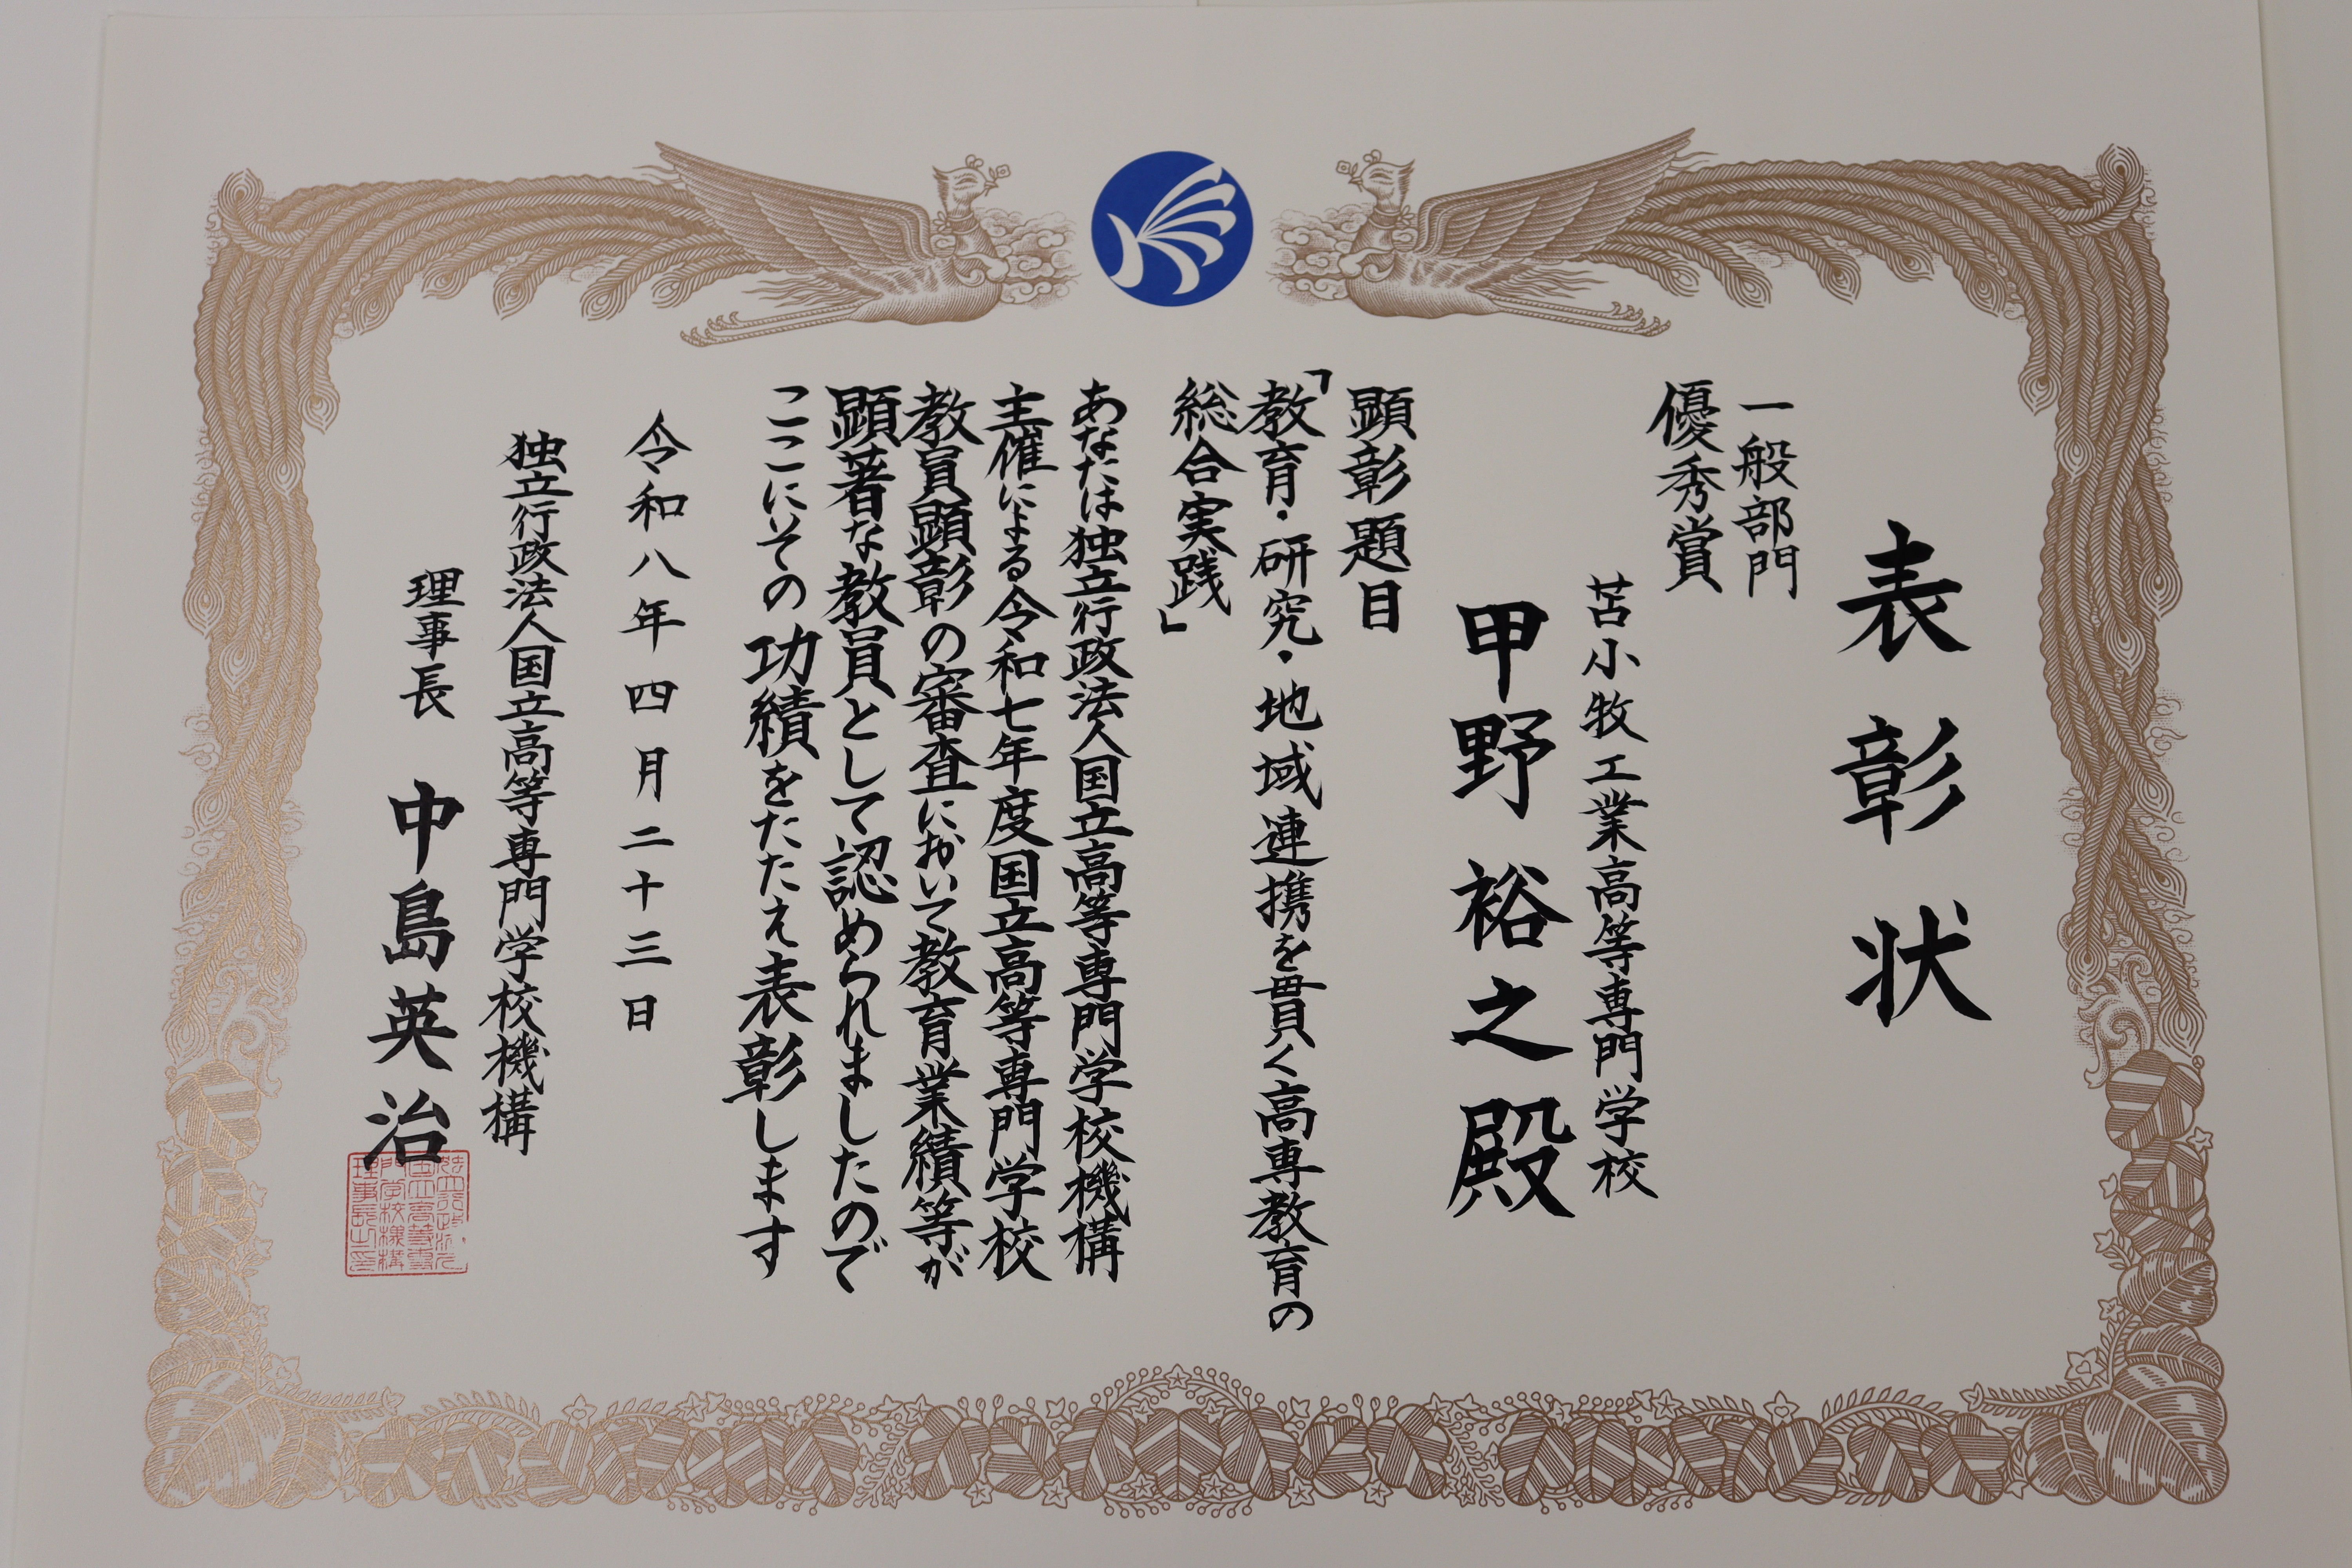 表彰状
一般部門
優秀賞
苫小牧工業高等専門学校
甲野裕之殿
顕彰題目
「教育・研究・地域連携を貫く高専教育の
総合実践」
あなたは独立行政法人国立高等専門学校機構
主催による令和七年度国立高等専門学校
教員顕彰の審査において教育業績等が
顕著な教員として認められましたので
ここにその功績をたたえ表彰します
令和八年四月二十三日
独立行政法人国立高等専門学校機構
理事長 中島英治